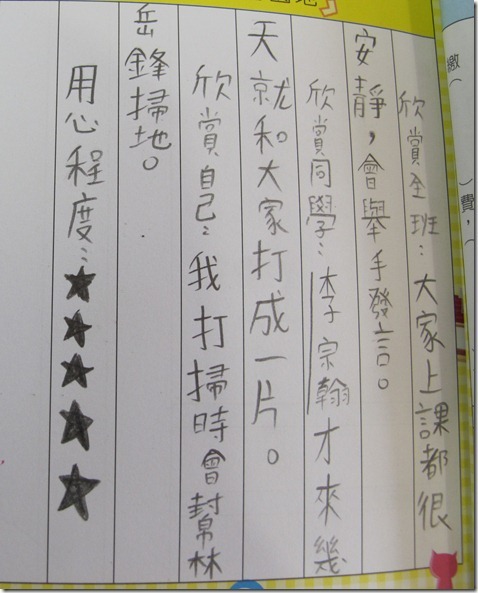 欣賞全班：大家上課都很
安靜，會舉手發言。
欣賞同學：李宗翰才來幾
天就和大家打成一片。
欣賞自己：我打掃時會幫林
岳鋒掃地。
用心程度：★★★★★
繳（
）費，（